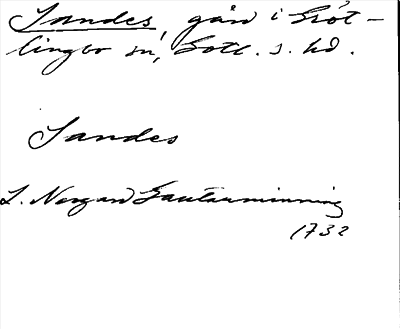 Sandes, gård i Gröt-
lingbo sn, Gotl. s. hd.
Sandes
L. Nergard Gautarminning
1732